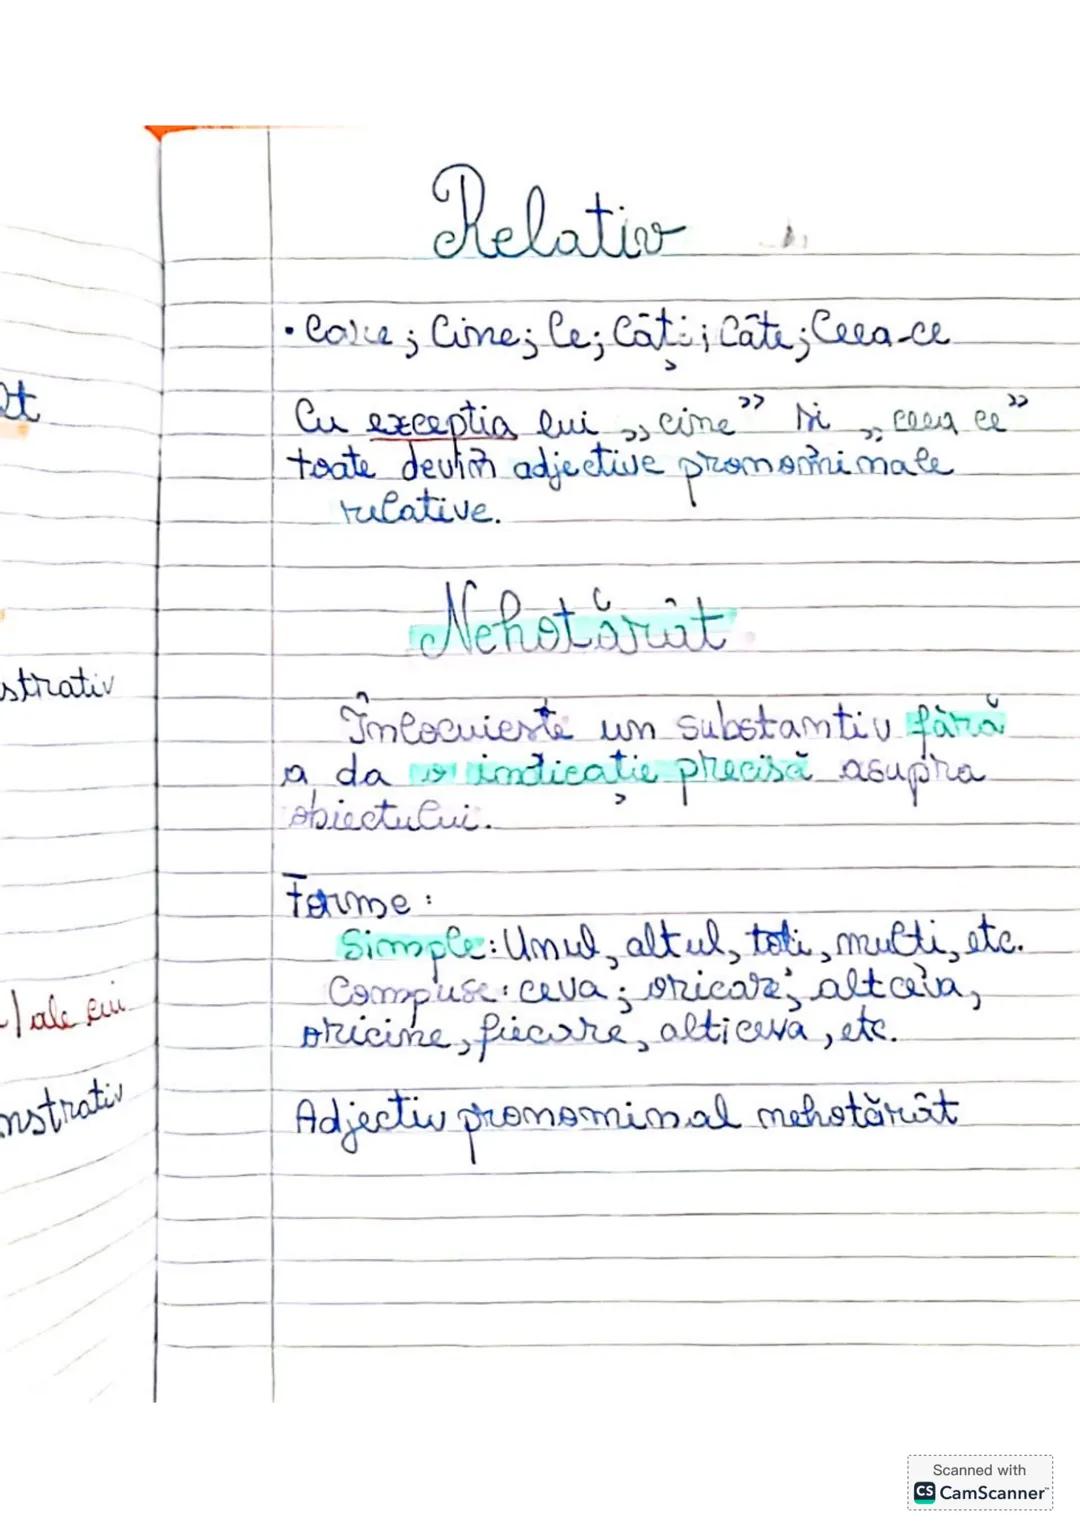 Relativ
• Care; Cine; Ce; Câți; Câte; Ceea-ce
Cu excepția lui „cine” si „ceea ce”
toate devin adjective pronominale
relative.
Nehotărât
Înlocuieste un substantiv fără
a da o indicație precisă asupra
obiectului.
Forme:
Simple: Unul, altul, toti, multi, etc.
Compuse: ceva; oricare; altceva,
oricine, fiecare, alticeva, etc.
Adjectiv pronominal nehotărât
strativ
ale cui
nstrativ
Scanned with
CS CamScanner